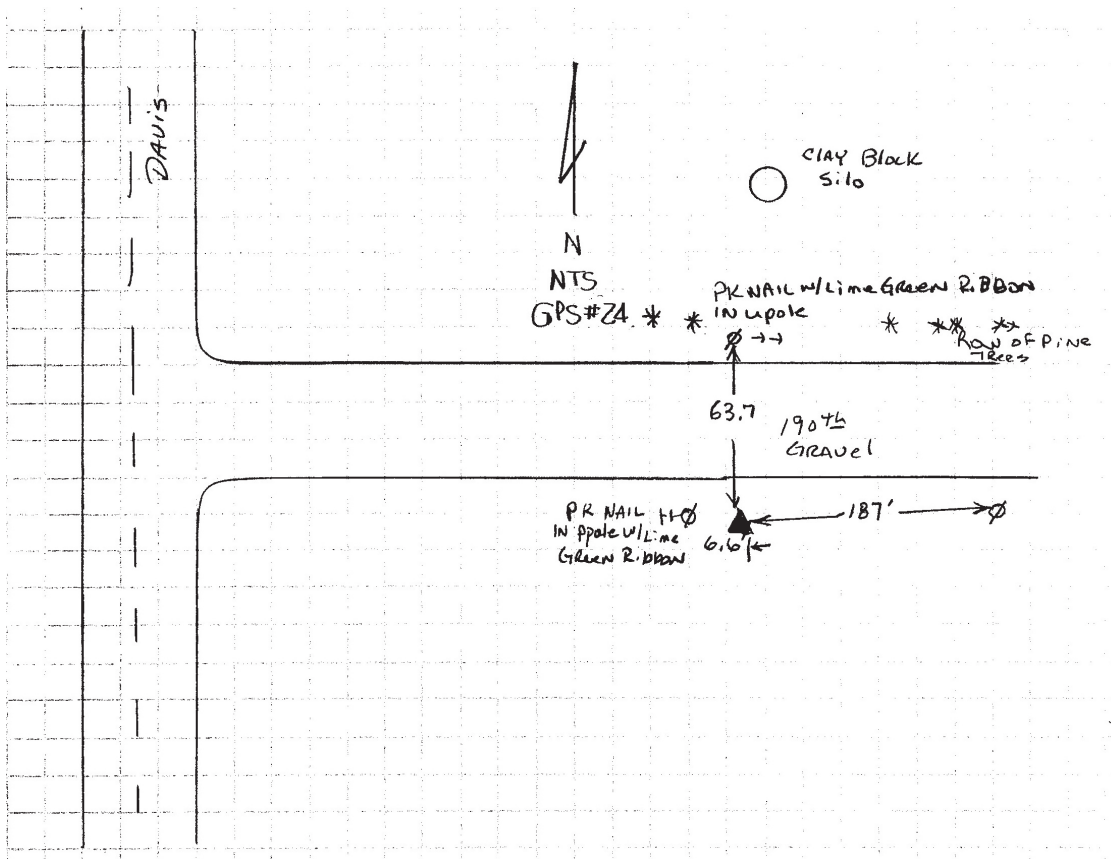 DAVIS
CLAY Block
Silo
N
NTS
GPS#24
PK NAIL W/Lime GREEN RIBBON
IN upole
Row of Pine
Trees
63.7
190th
GRAVEL
PK NAIL
IN Ppole W/Lime
GREEN RIBBON
187'
6.6'